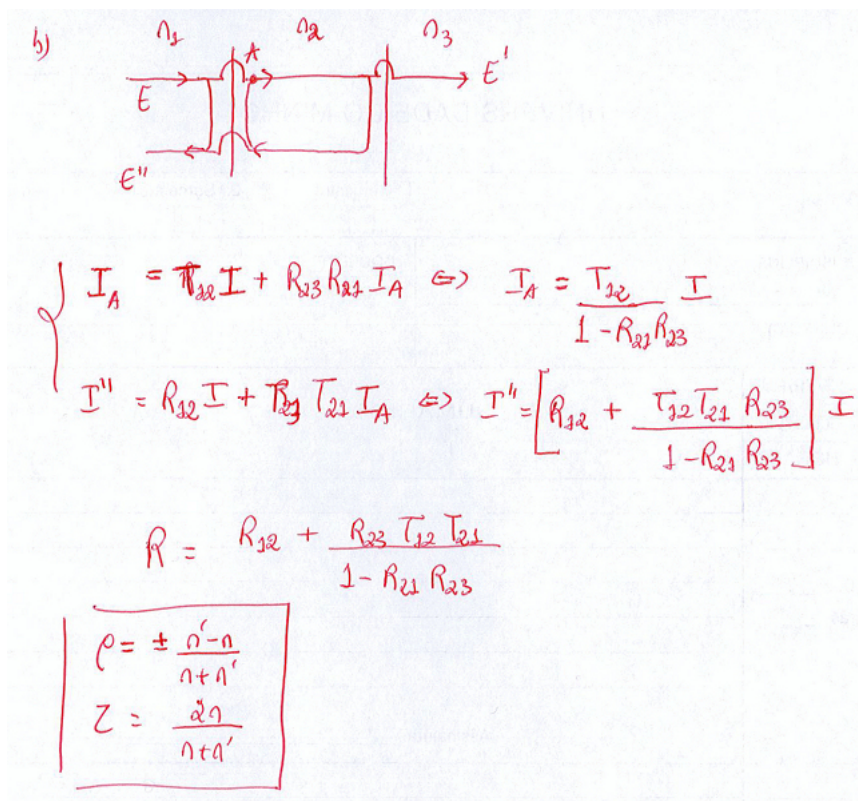 b) n₁ n₂ n₃
A
E E'
E''
I_A = T₁₂ I + R₂₃ R₂₁ I_A ⇔ I_A = T₁₂ / (1 - R₂₁ R₂₃) I
I'' = R₁₂ I + R₂₃ T₂₁ I_A ⇔ I'' = [R₁₂ + T₁₂ T₂₁ R₂₃ / (1 - R₂₁ R₂₃)] I
R = R₁₂ + R₂₃ T₁₂ T₂₁ / (1 - R₂₁ R₂₃)
ρ = ± (n' - n) / (n + n')
τ = 2n / (n + n')